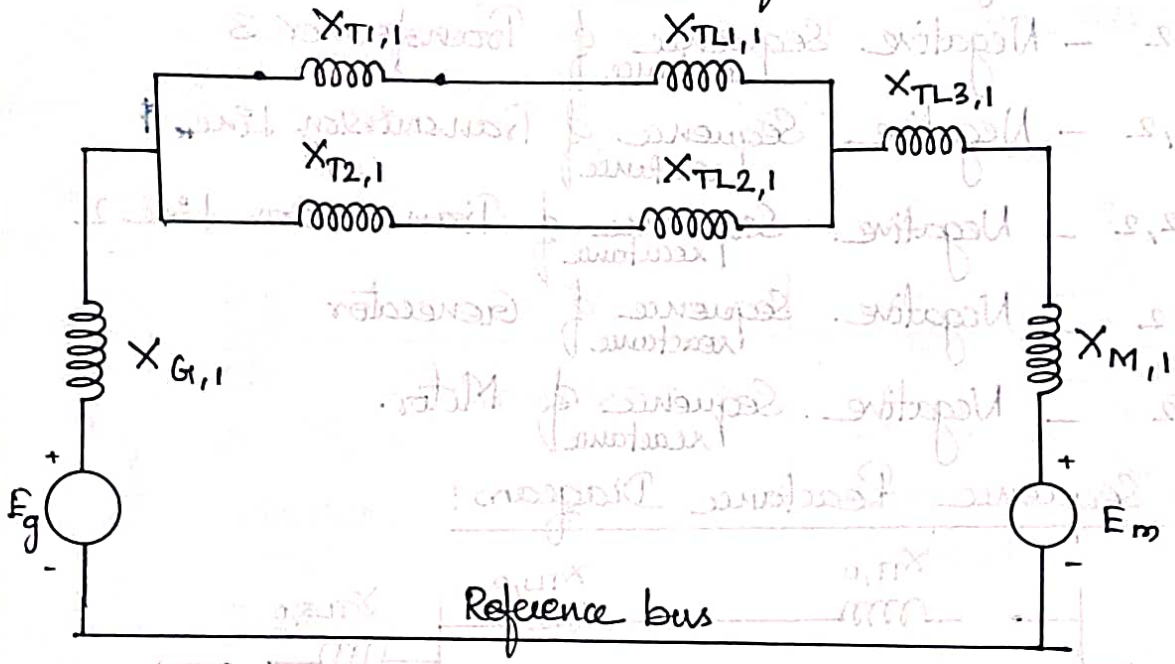 X_T1,1
X_TL1,1
X_TL3,1
X_T2,1
X_TL2,1
X_G,1
X_M,1
+
+
E_g
E_m
-
-
Reference bus